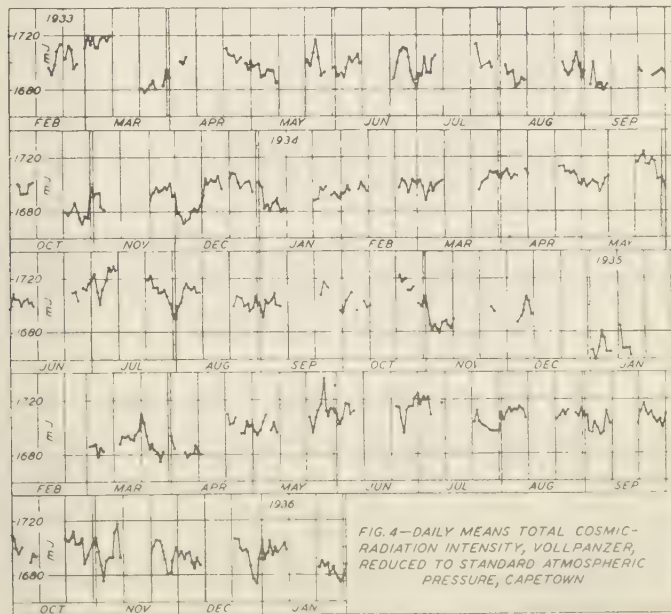 1933
1720
mJ
1680
FEB MAR APR MAY JUN JUL AUG SEP
1934
1720
mJ
1680
OCT NOV DEC JAN FEB MAR APR MAY
1935
1720
mJ
1680
JUN JUL AUG SEP OCT NOV DEC JAN
1720
mJ
1680
FEB MAR APR MAY JUN JUL AUG SEP
1936
1720
mJ
1680
OCT NOV DEC JAN
FIG. 4—DAILY MEANS TOTAL COSMIC-
RADIATION INTENSITY, VOLLPANZER,
REDUCED TO STANDARD ATMOSPHERIC
PRESSURE, CAPETOWN